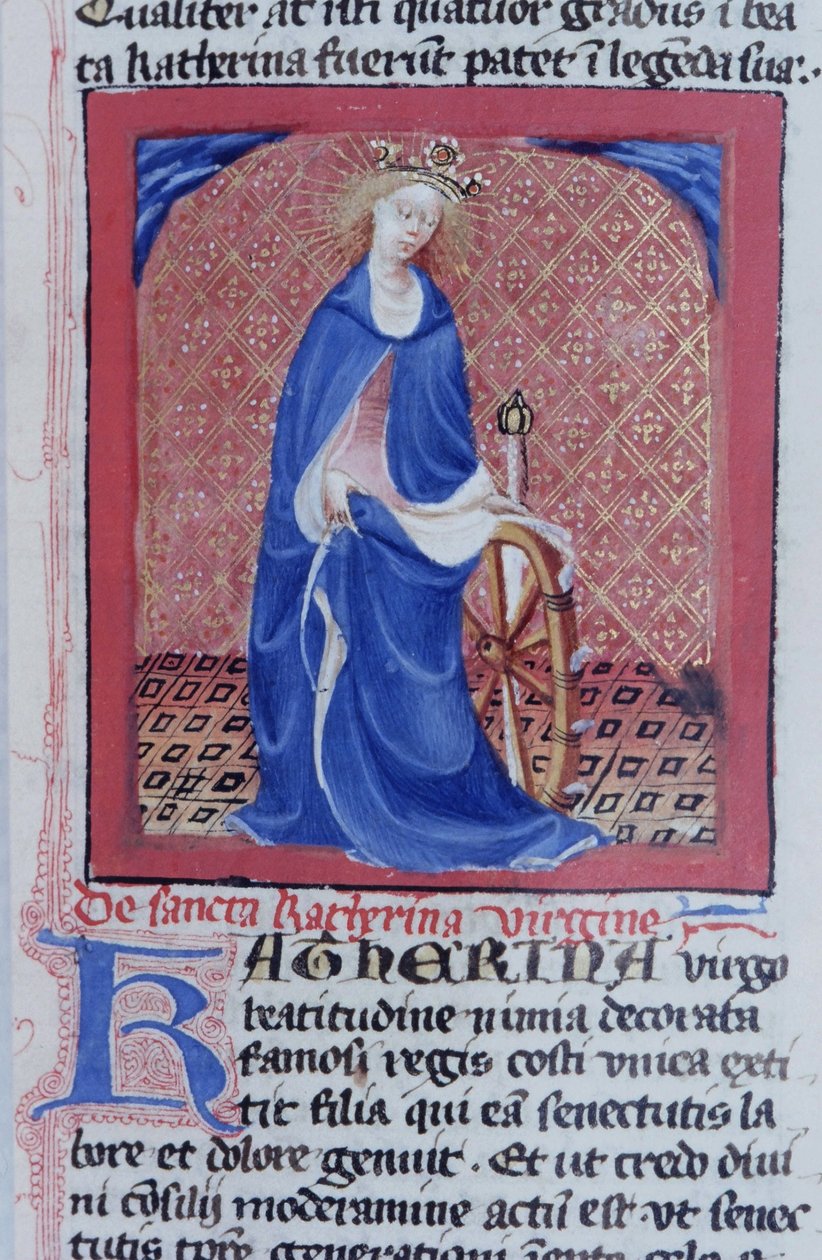 Qualiter at isti quatuor gradus ī bea
ta katherina fuerūt patet ī legēda sua:.
De sancta katherina virgine
KATHERINA virgo
beatitudine nimia decorata
famosi regis costi vnica exti
tit filia qui eā senectutis la
bore et dolore genuit. Et ut credo diui
ni cōsilij moderamine actū est vt senec
tutis tpre generationi